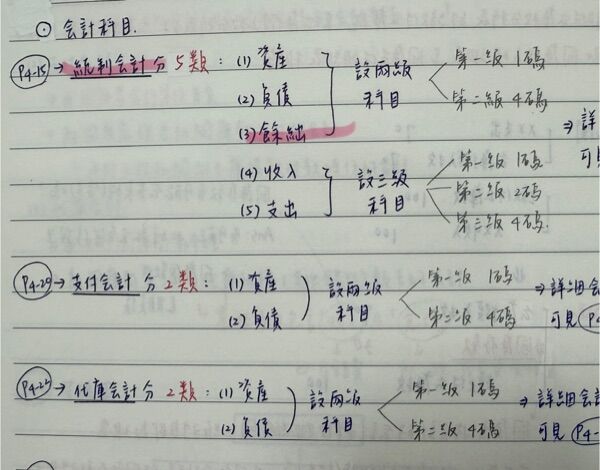 ⊙ 会計科目.
P4-15 → 統制会計分5類: (1) 資產 設兩級 第一級 1碼
(2) 負債 科目 第二級 4碼
(3) 餘絀 ⇒ 詳
(4) 收入 設三級 第一級 1碼 可見
(5) 支出 科目 第二級 2碼
第三級 4碼.
→ 支付会計分2類: (1) 資產 設兩級 第一級 1碼 ⇒ 詳細会
(2) 負債 科目 第二級 4碼 可見
→ 代庫会計分2類: (1) 資產 設兩級 第一級 1碼 ⇒ 詳細会計
(2) 負債 科目 第二級 4碼 可見 P4-